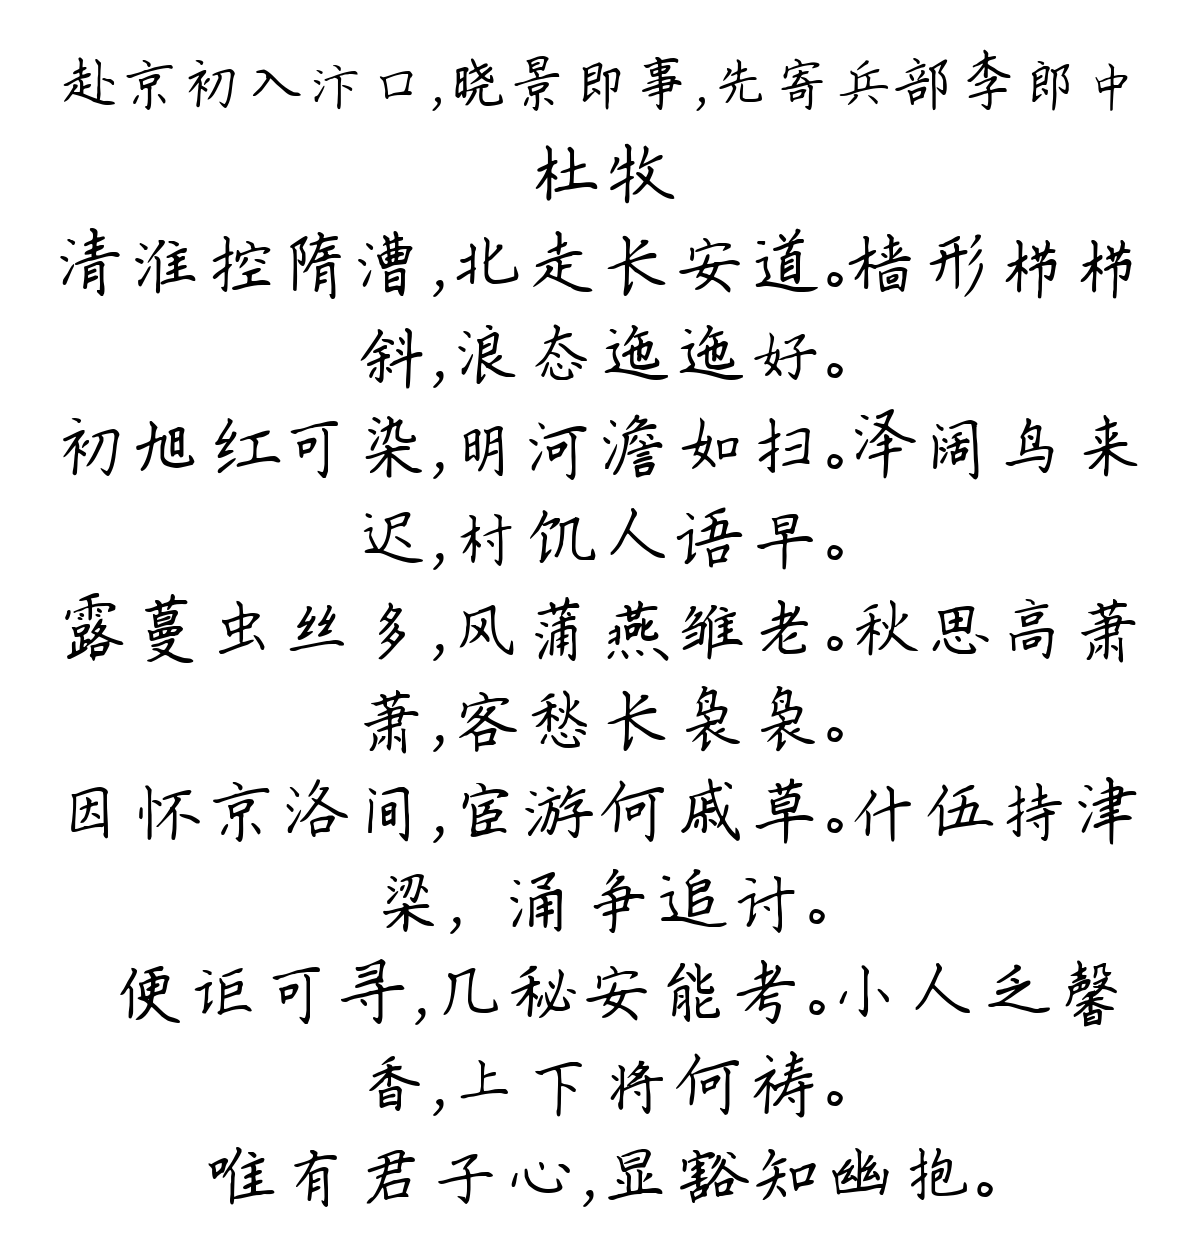 赴京初入汴口,晓景即事,先寄兵部李郎中
杜牧
清淮控隋漕,北走长安道。樯形栉栉
斜,浪态迤迤好。
初旭红可染,明河澹如扫。泽阔鸟来
迟,村饥人语早。
露蔓虫丝多,风蒲燕雏老。秋思高萧
萧,客愁长袅袅。
因怀京洛间,宦游何戚草。什伍持津
梁，涌争追讨。
便讵可寻,几秘安能考。小人乏馨
香,上下将何祷。
唯有君子心,显豁知幽抱。